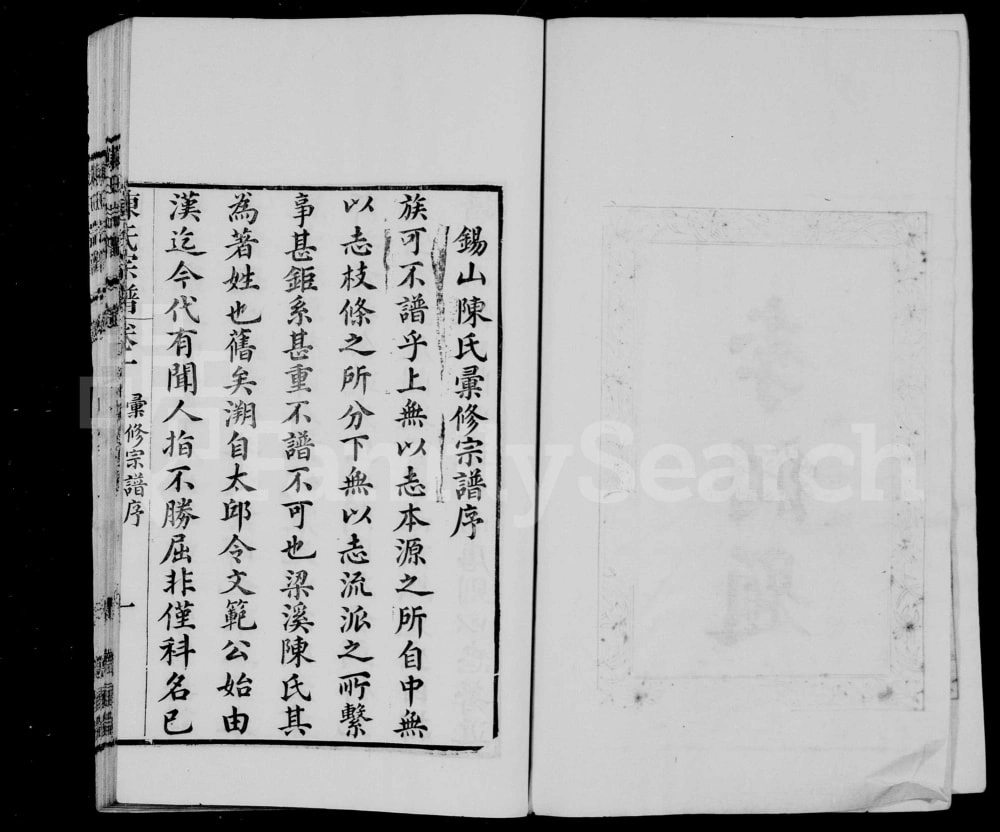 錫山陳氏彙修宗譜序
族可不譜乎上無以志本源之所自中無
以志枝條之所分下無以志流派之所繫
事甚鉅系甚重不譜不可也梁溪陳氏其
為著姓也舊矣溯自太邱令文範公始由
漢迄今代有聞人指不勝屈非僅科名已
陳氏宗譜 卷一 彙修宗譜序 一
FamilySearch